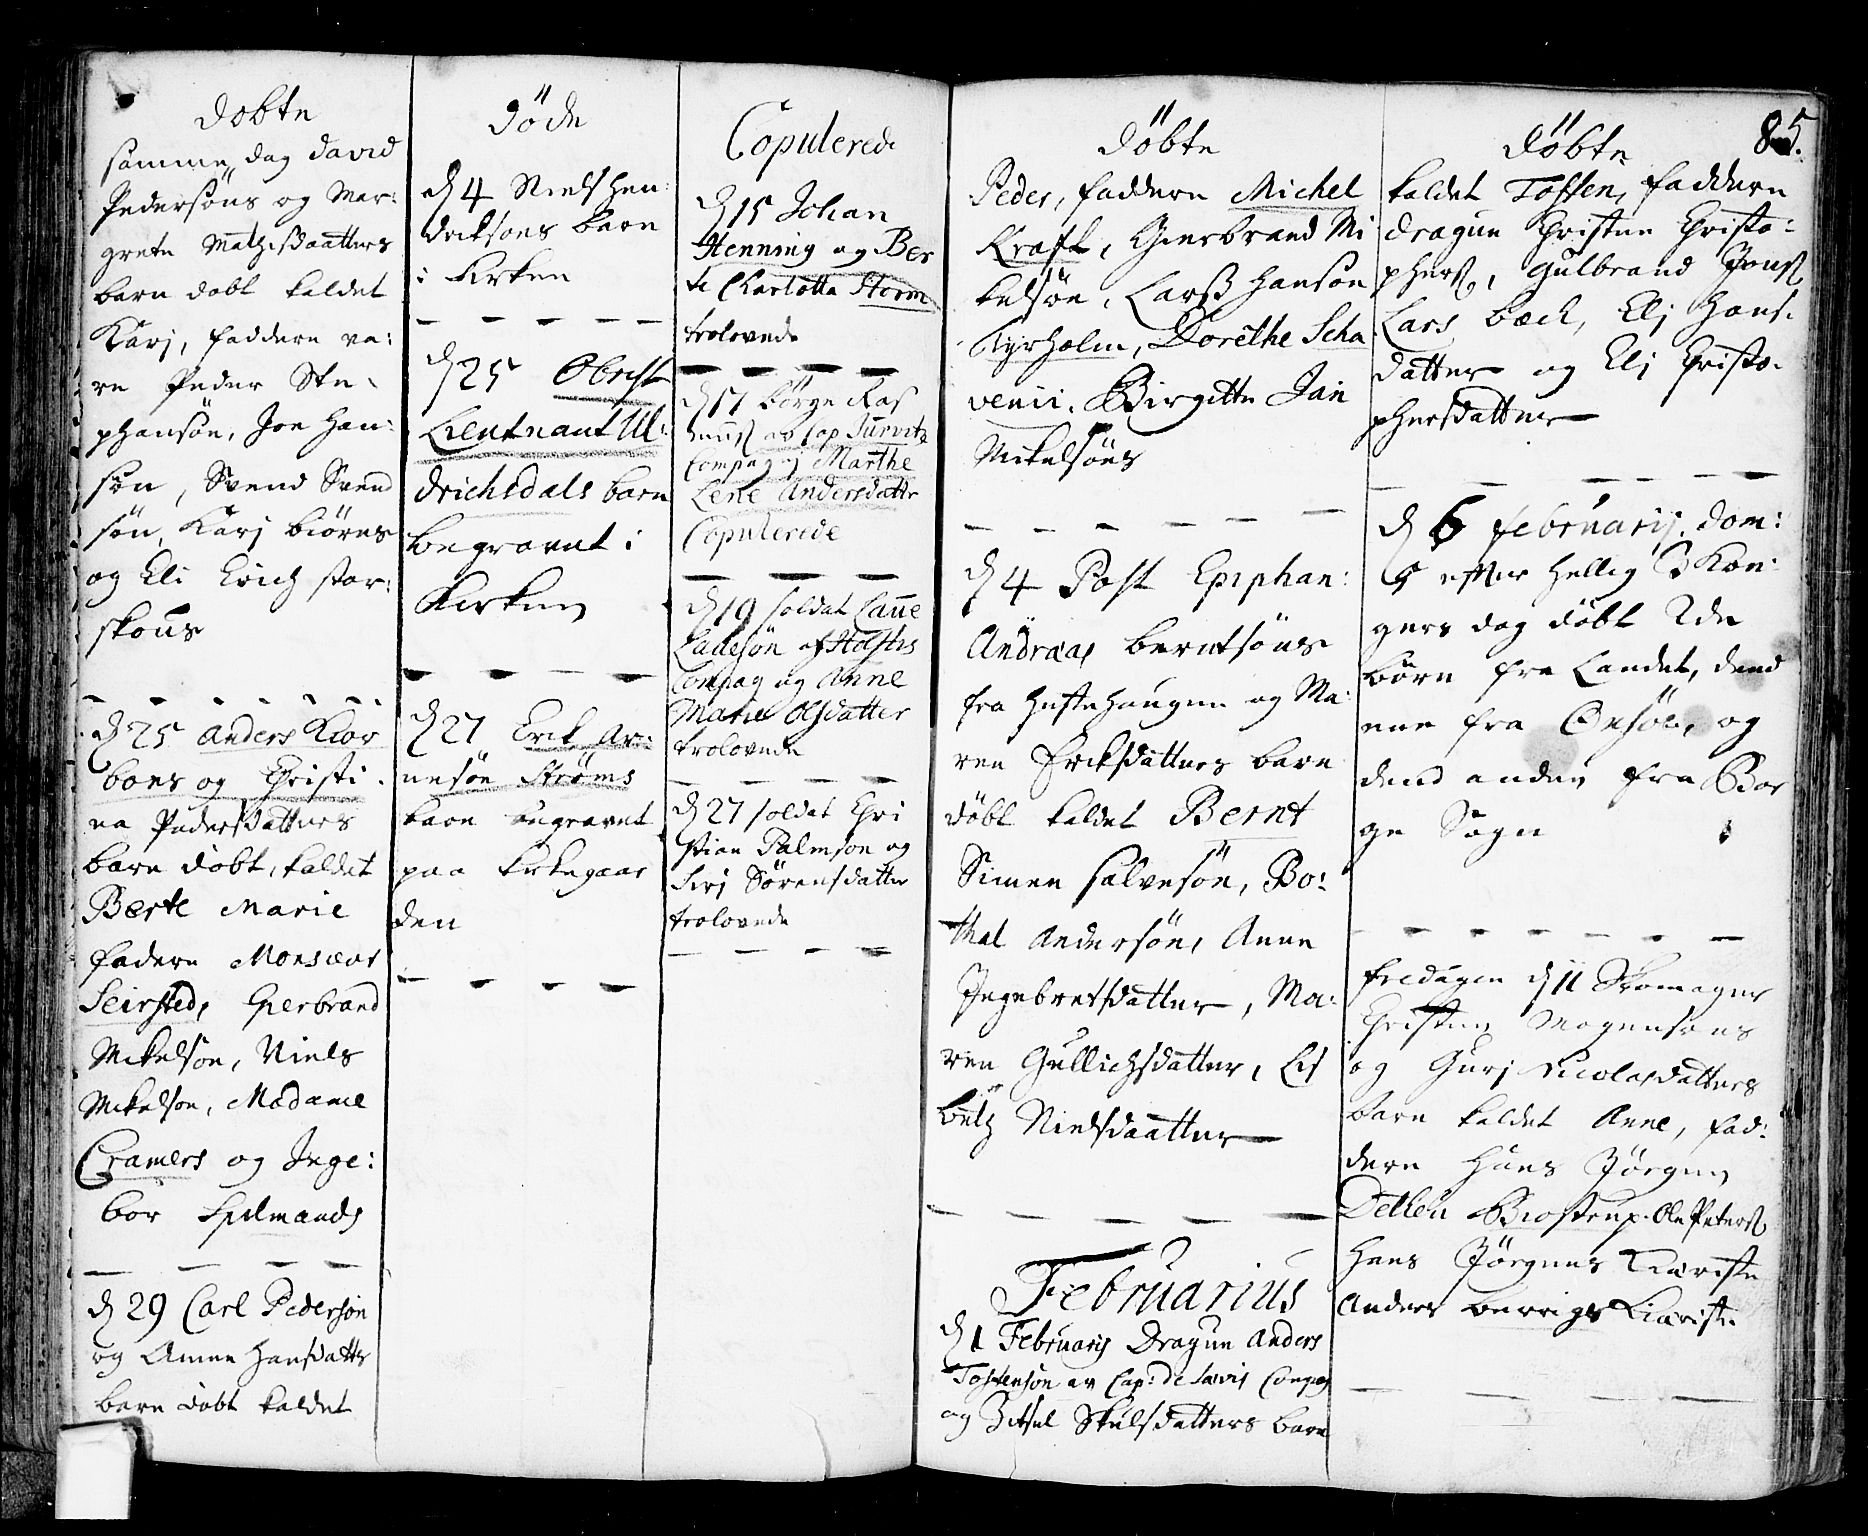 döbte
samme dag david
Pedersöns og Mar:
grete Mathisdaatters
barn döbt kaldet
Karj, faddern va:
re Peder Ste:
phansön, Jon Han:
sön, Svend Svend
sön, Karj biörns
og Eli Erich stor:
skous
d 25 Anders Kior
boes og Christi:
na Pedersdatters
barn döbt, kaldet
Berte Marie
fadern Monsieur
Seirsted, Gierbrand
Mikelsön, Niels
Mikelsön, Madame
Cramers og Inge:
bor Spilmands
d 29 Carl Pedersön
og Anne Hansdatts
barn döbt kaldet
döde
d 4 Niels Hen:
dricksons barn
i Kirken
d 25 Obrist
Lieutnant Ul:
drichsdals barn
begravet i
Kirken
d 27 Erik Ar:
nesön Ströms
barn begravet
paa Kirkegaar
den
Copulerede
d 15 Johan
Henning og Ber
te Charlotta Storm
trolovede
d 17 börge Ras
muss av Cap Turvitz
Compag og Marthe
Lene Andersdatter
Copulerede
d 19 soldat Laue
Ladesön af Holstes
Compag og Anne
Marie Olsdatter
trolovede
d 27 soldat Chri
stian Palmsön og
Sirj Sörensdatter
trolovede
döbte
Peder, faddern Michel
Kraft, Gierbrand Mi
kelsön, Larss Hansön
Kyrholm, Dorethe Scha
venii, Birgitte Jan
Mikelsöns
d 4 Post Epiphan:
Andreas berntsöns
fra Hestehaugen og Ma:
ren Ericksdatters barn
döbt kaldet Bernt
Simen salvesön, Bo:
thel Andersön, Anne
Ingebretsdatter, Ma:
ren Gullichsdatter, Lis
beth Nielsdaatter
Februarius
d 1 Februarij Dragun Anders
Tostensön av Cap: de Seuvis Compag
og Zitsel Skulsdatters barn
döbte
85.
kaldet Tosten, faddern
dragun Christen Christo:
phers, Gulbrand Jons
Lars Beck, Elj Hans:
datter og Elj Christo:
phersdatter
d 6 februarij. dom:
5 efter hellig 3 Kon:
gers dag döbt 2de
börn fra Landet, dend
ene fra Onsöe, og
dend anden fra Bor
ge Sogn
fredagen d 11 Skomager
Christen Mogensöns
og Gurj Nicolasdatters
barn kaldet Anne, fad:
dern Hans Jörgen
Detleu Brostrup. Ole Peterss
Hans Jörgens Kieriste
Anders berrigs Kieriste